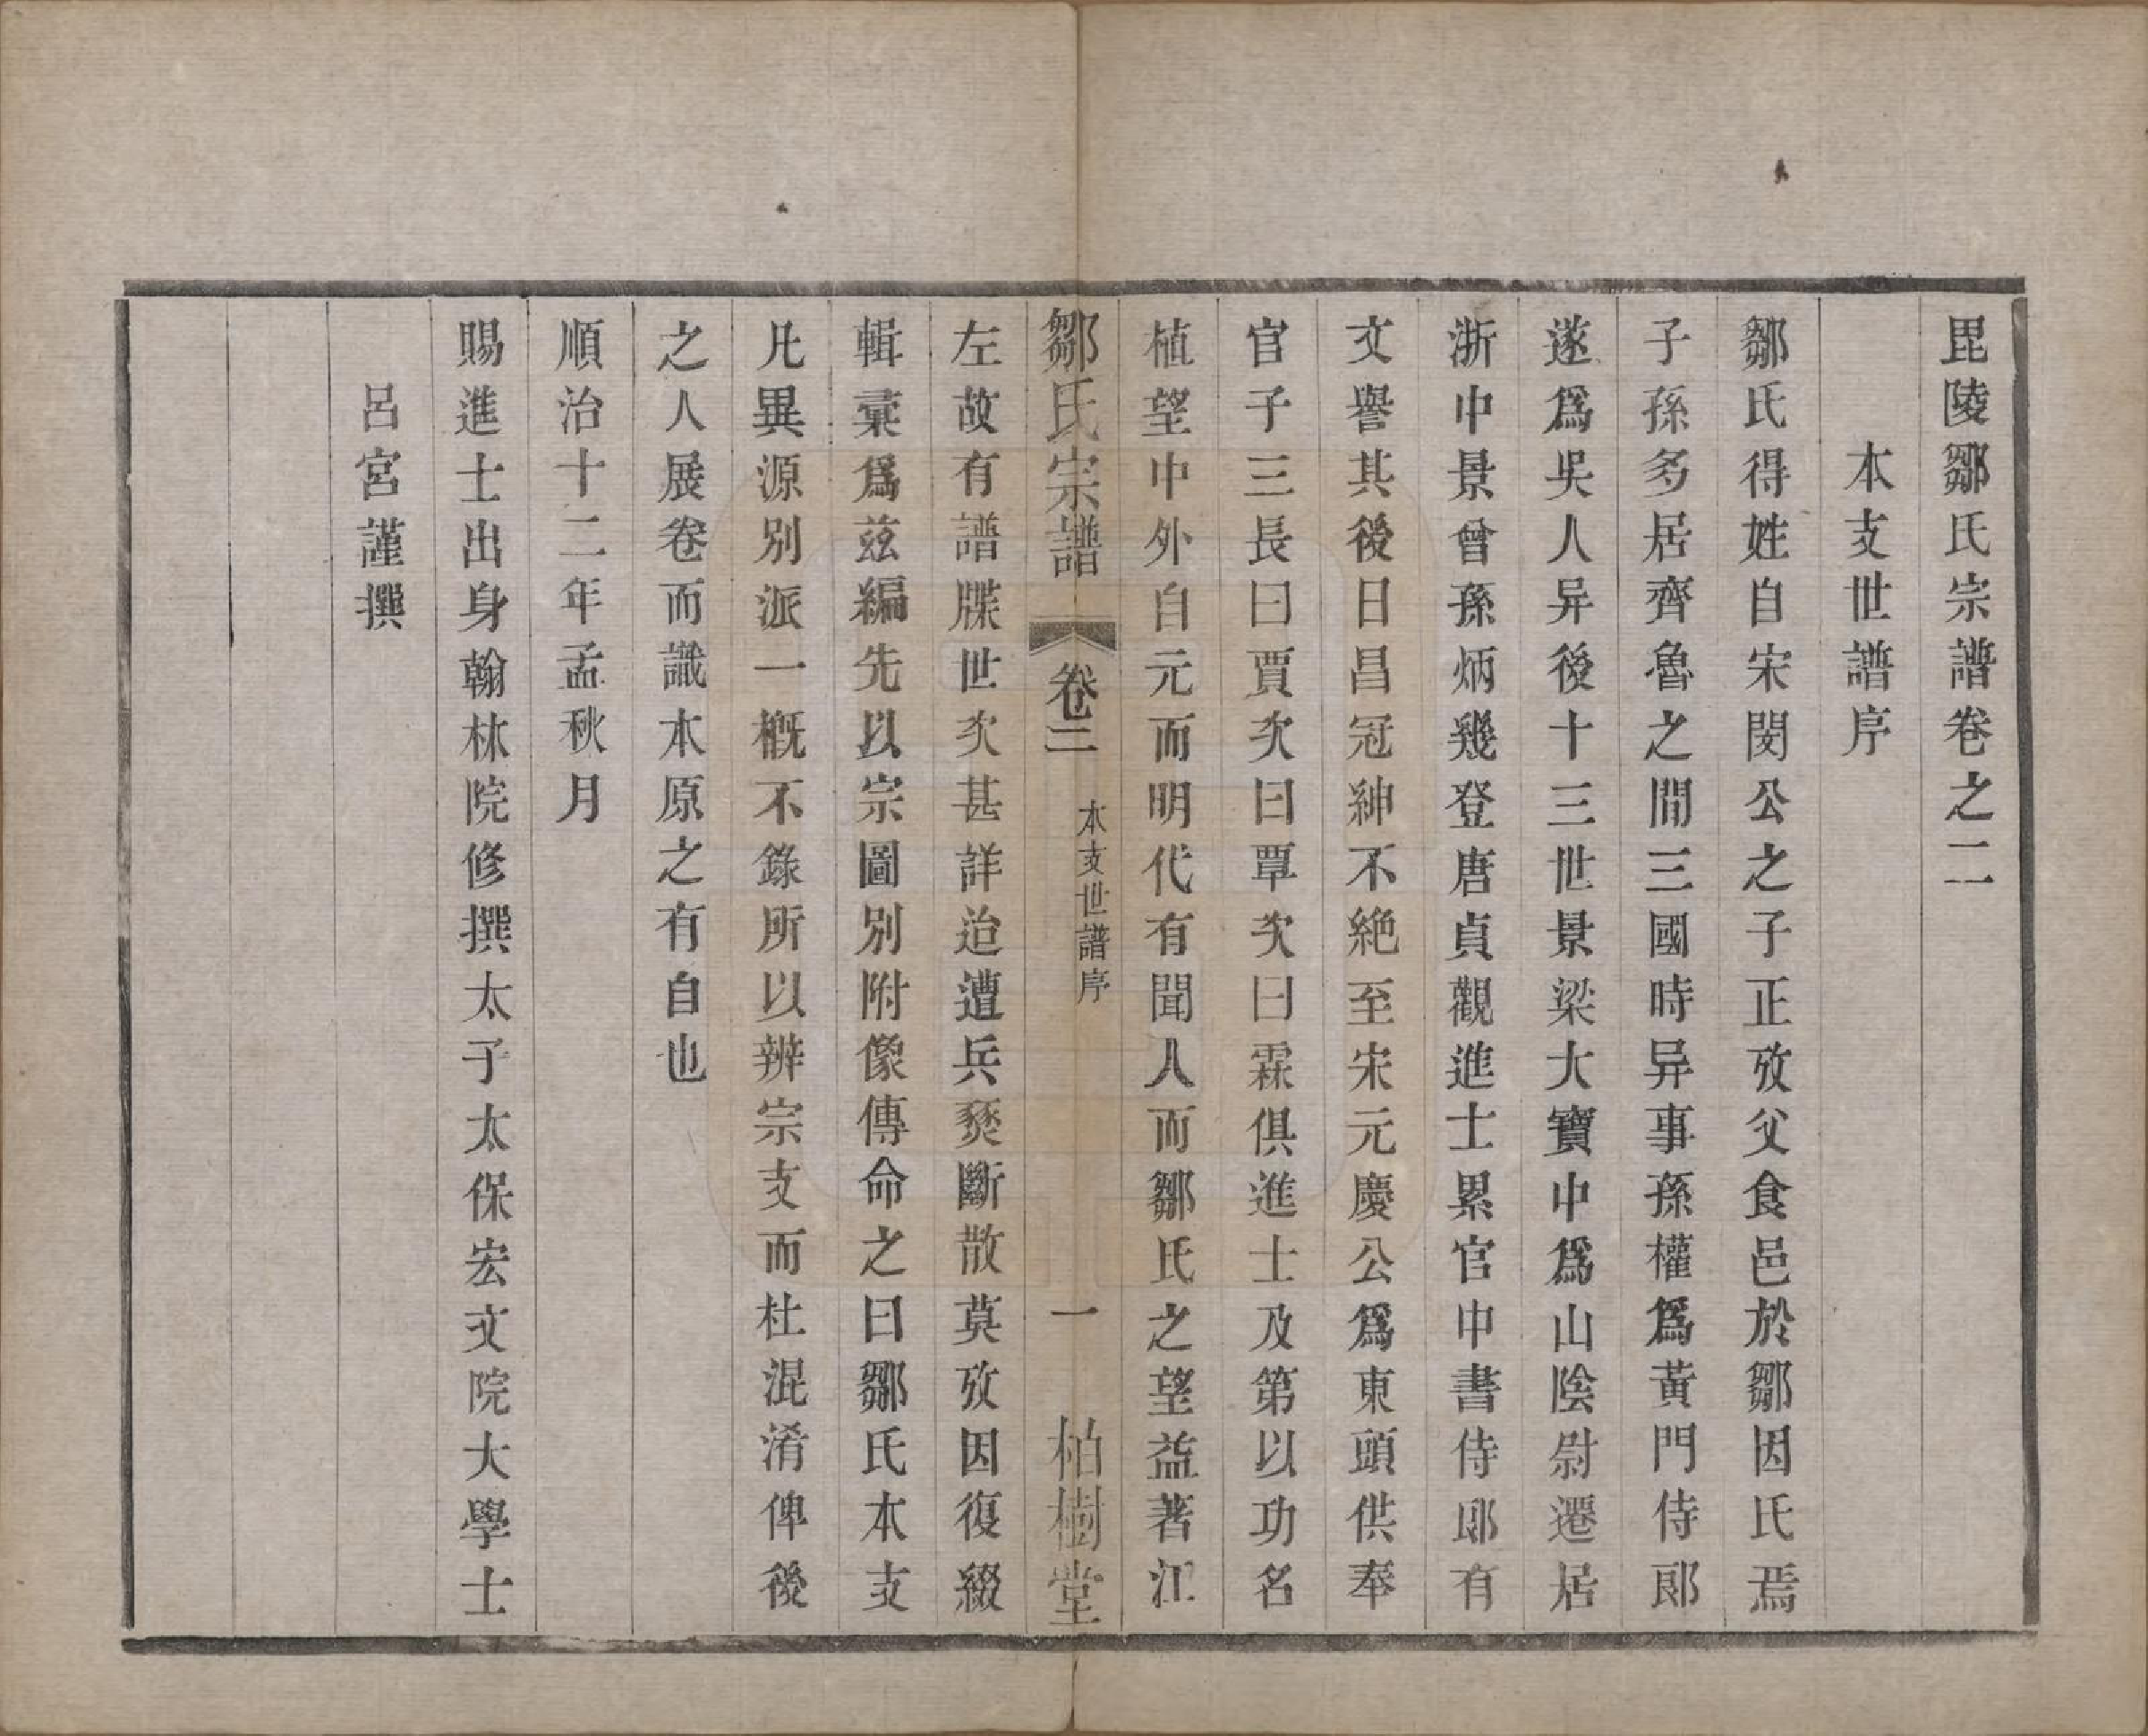 毘陵鄒氏宗譜卷之二
本支世譜序
鄒氏得姓自宋閔公之子正攷父食邑於鄒因氏焉
子孫多居齊魯之間三國時异事孫權爲黃門侍郞
遂爲吳人异後十三世景梁大寶中爲山陰尉遷居
浙中景曾孫炳幾登唐貞觀進士累官中書侍郞有
文譽其後日昌冠紳不絶至宋元慶公爲東頭供奉
官子三長曰賈次曰覃次曰霖俱進士及第以功名
植望中外自元而明代有聞人而鄒氏之望益著江
鄒氏宗譜 卷二 本支世譜序 一 柏樹堂
左故有譜牒世次甚詳迨遭兵燹斷散莫攷因復綴
輯彙爲茲編先以宗圖別附像傳命之曰鄒氏本支
凡異源別派一槪不錄所以辨宗支而杜混淆俾後
之人展卷而識本原之有自也
順治十二年孟秋月
賜進士出身翰林院修撰太子太保宏文院大學士
呂宮謹撰